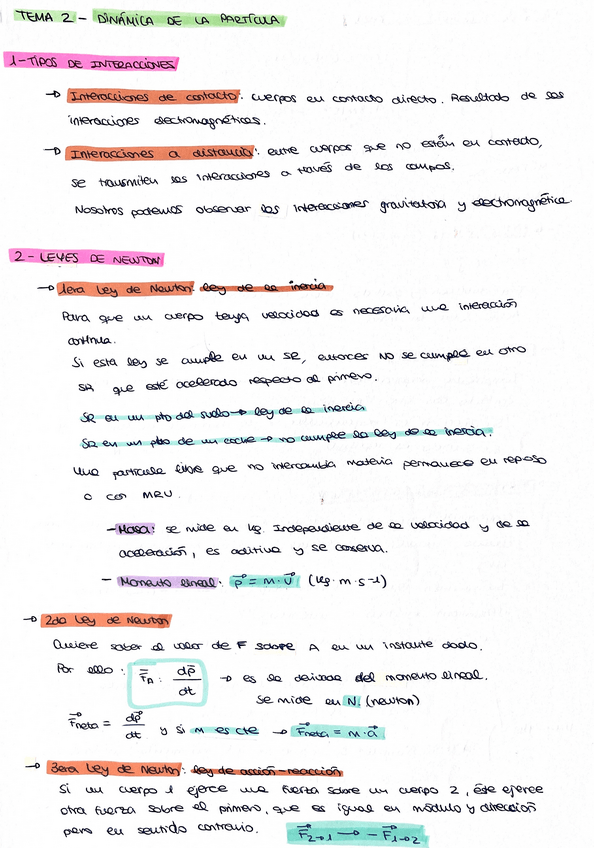 TEMA 2 - DINÁMICA DE LA PARTÍCULA
1-TIPOS DE INTERACCIONES
→ Interacciones de contacto: cuerpos en contacto directo. Resultado de sas
interacciones electromagnéticas.
→ Interacciones a distancia: entre cuerpos que no están en contacto,
se transmiten sas interacciones a través de los campos.
Nosotros podemos observar las interacciones gravitatoria y electromagnética.
2- LEYES DE NEWTON
→ 1era Ley de Newton: ley de la inercia
Para que un cuerpo tenga velocidad es necesaria una interacción
continua.
Si esta ley se cumple en un SR, entonces NO se cumple en otro
SR que esté acelerado respecto al primero.
SR en un pto del suelo → ley de la inercia
SR en un pto de un coche → no cumple la ley de la inercia.
Una partícula libre que no intercambia materia permanece en reposo
o con MRU.
- Masa: se mide en kg. Independiente de la velocidad y de la
aceleración, es aditiva y se conserva.
- Momento lineal: p⃗ = m·v⃗ (kg·m·s-1)
→ 2da Ley de Newton
Quiere saber el valor de F sobre A en un instante dado.
Por ello: F⃗A : dp⃗/dt → es la derivada del momento lineal.
Se mide en N. (newton)
F⃗neta = dp⃗/dt y si m es cte → F⃗neta = m·a⃗
→ 3era Ley de Newton: ley de acción-reacción
Si un cuerpo 1 ejerce una fuerza sobre un cuerpo 2, éste ejerce
otra fuerza sobre el primero, que es igual en módulo y dirección
pero en sentido contrario. F⃗2→1 → - F⃗1→2